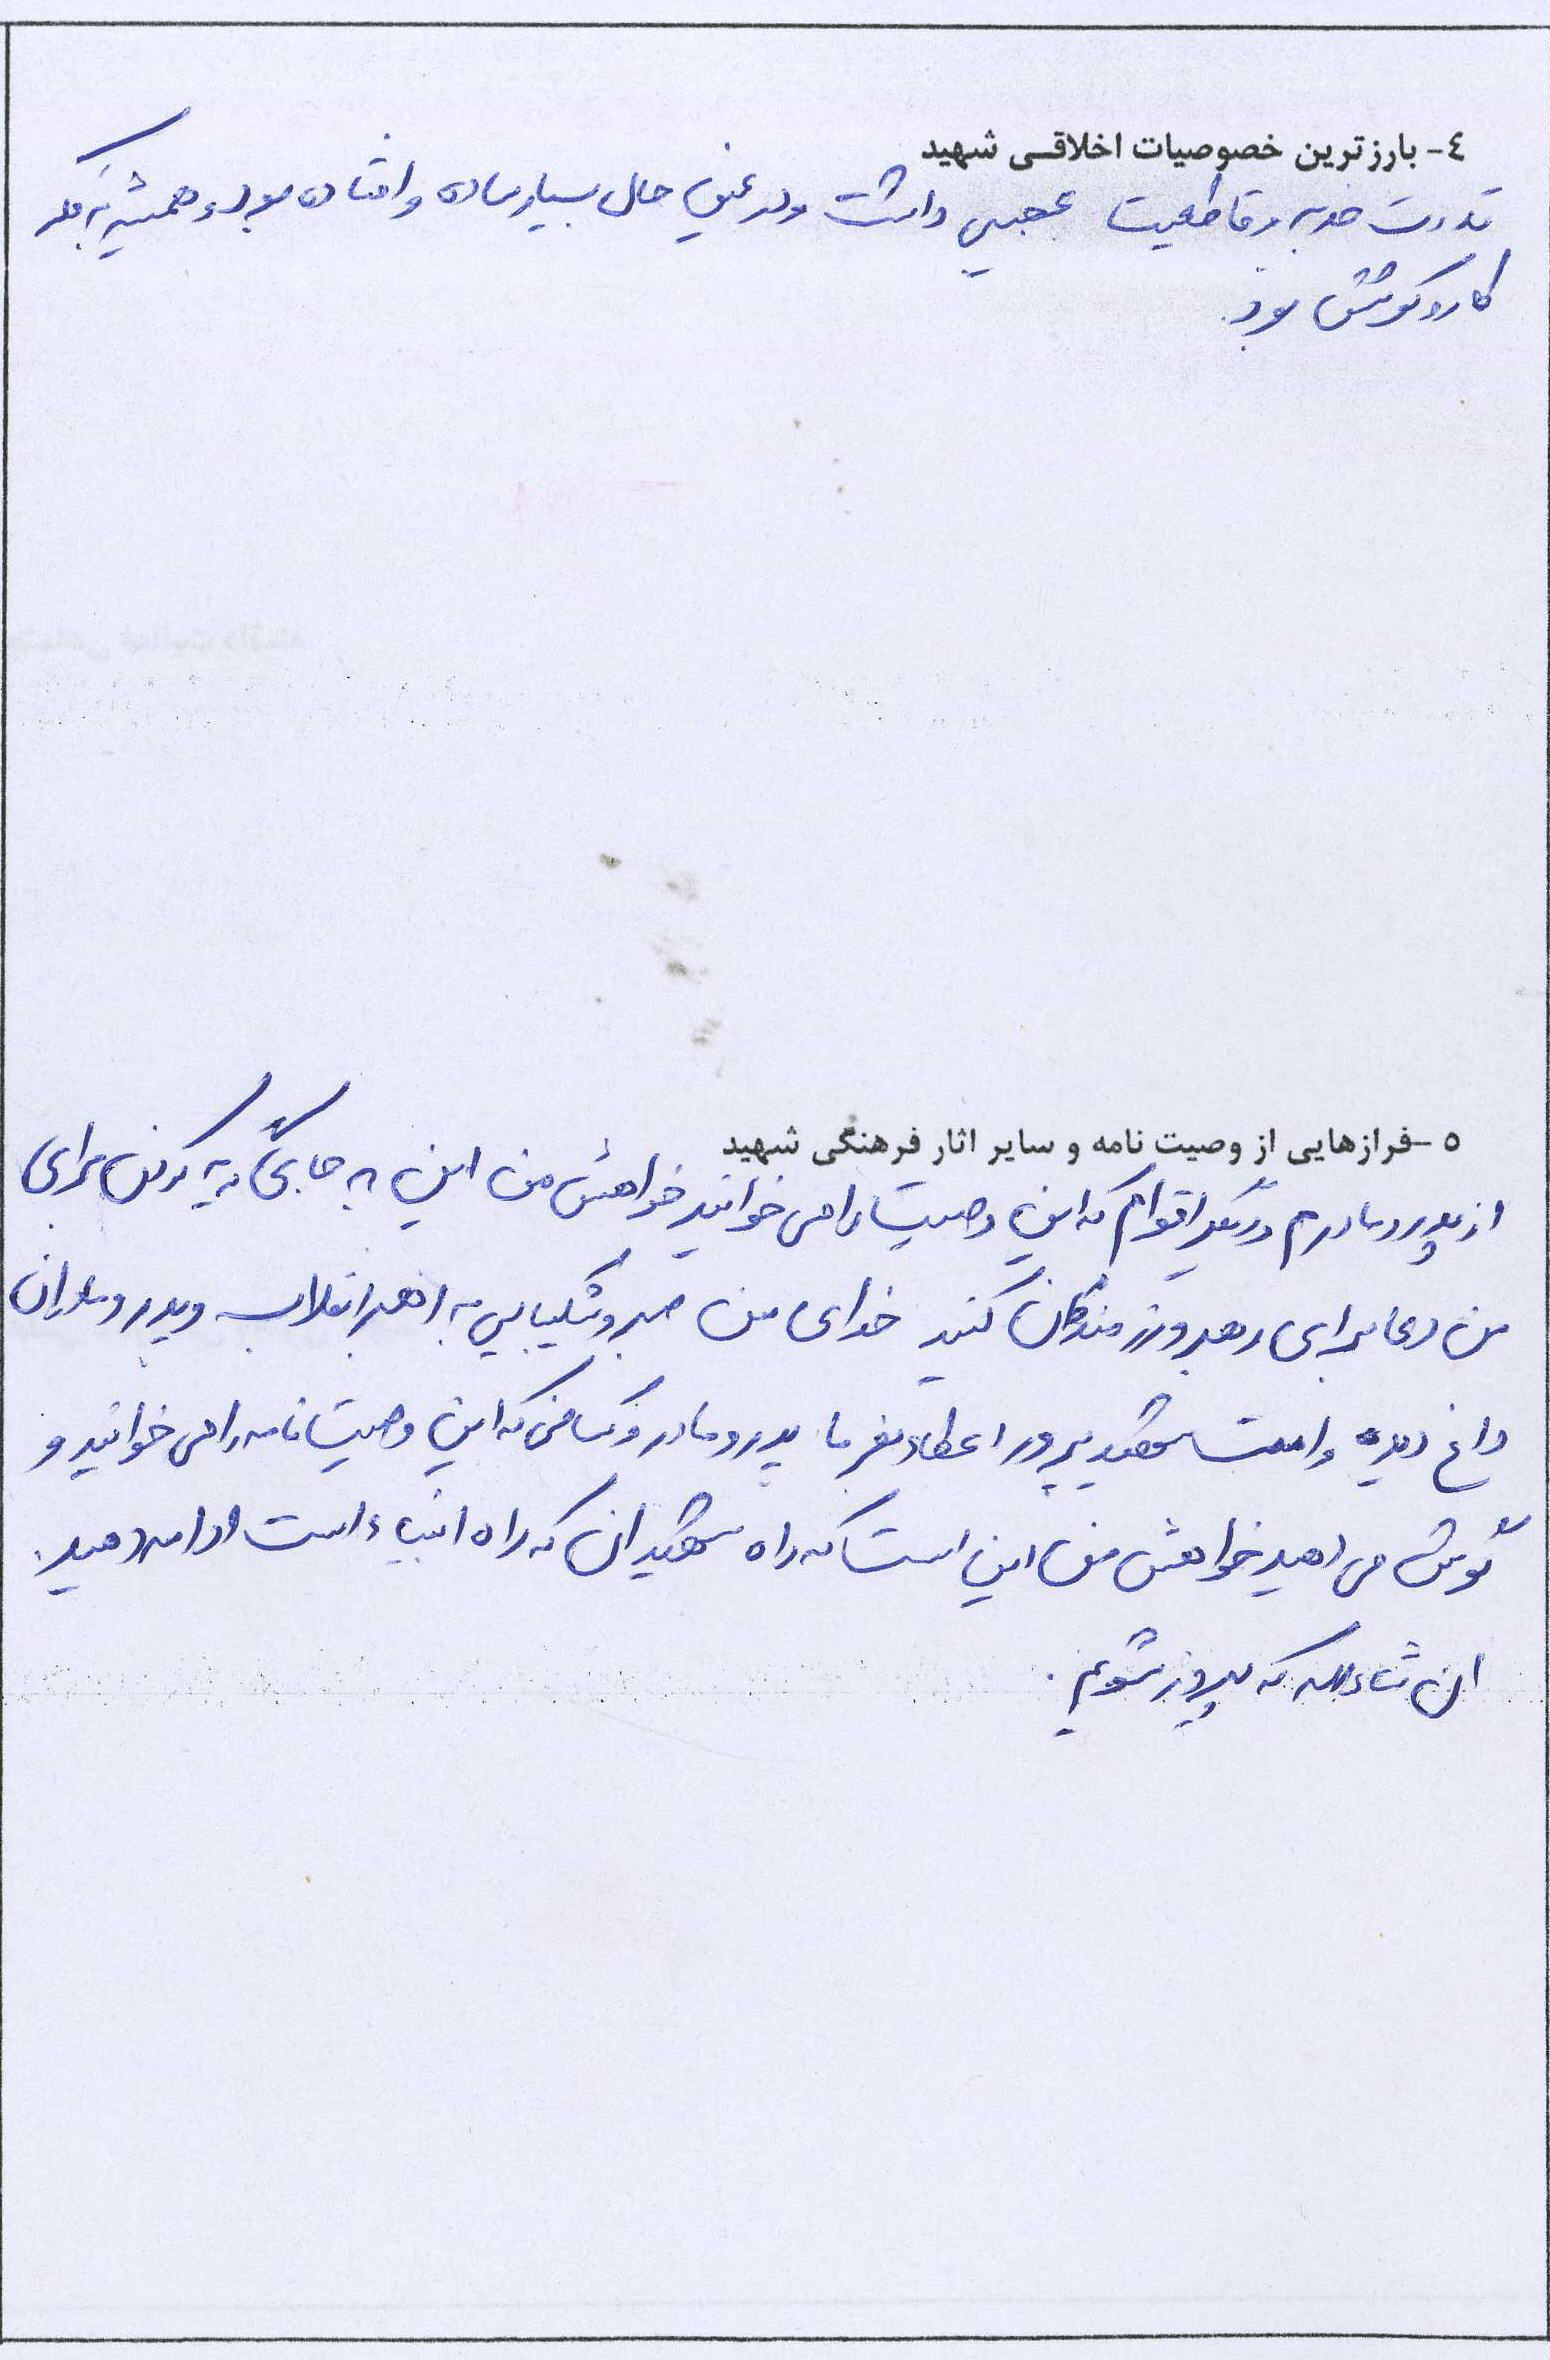 ٤- بارزترین خصوصیات اخلاقی شهید
قدرت جذبه و قاطعیت عجیبی داشت ودر عین حال بسیار ساده و افتاده بود و همیشه به فکر
کار و کوشش بود.
٥-فرازهایی از وصیت نامه و سایر اثار فرهنگی شهید
از پدر و مادرم و دیگر اقوام که این وصیت را می خوانید خواهش من این به جای گریه کردن برای
من دعا برای رهبر و رزمندگان کنید خدای من صبر و شکیبایی به رهبر انقلاب و پدر و مادران
داغ دیده و امت شهید پرور اعطاء بفرما پدر و مادر و کسانی که این وصیت نامه را می خوانید و
گوش می دهید خواهش من این است که راه شهیدان که راه انبیاء است ادامه دهید.
ان شاءالله که پیروز شویم.